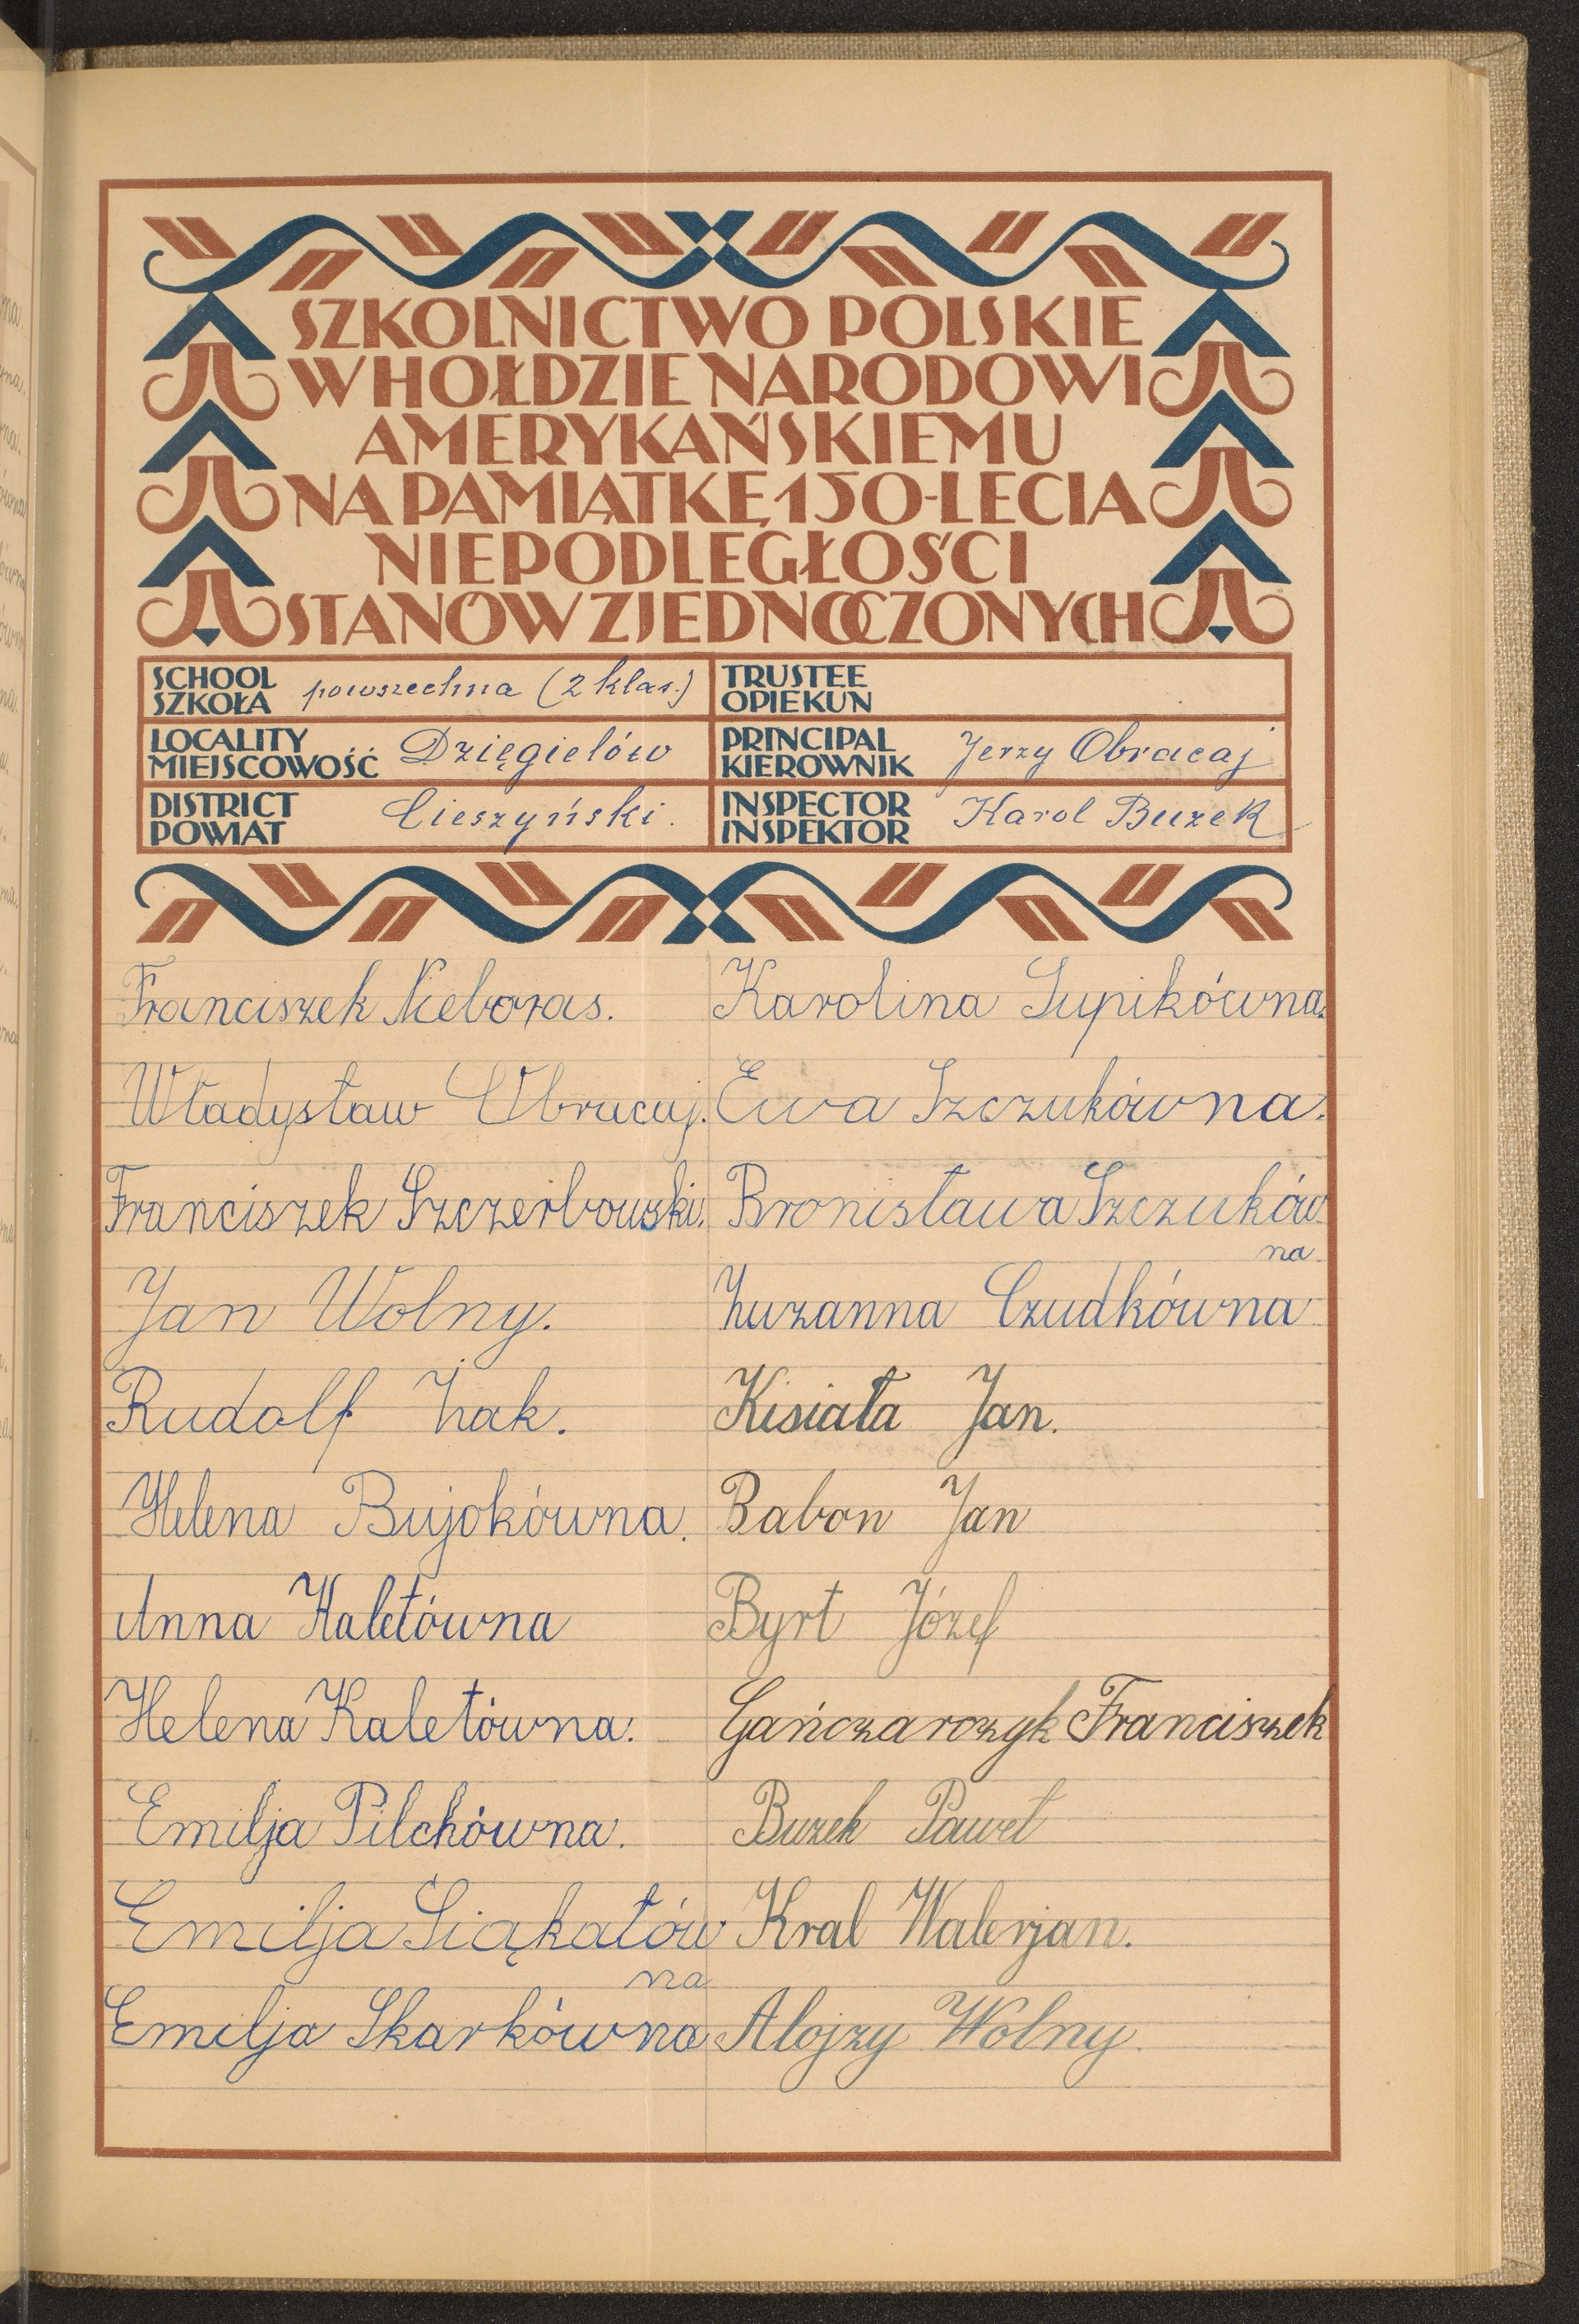 SZKOLNICTWO POLSKIE
W HOŁDZIE NARODOWI
AMERYKAŃSKIEMU
NA PAMIĄTKĘ 150-LECIA
NIEPODLEGŁOŚCI
STANÓW ZJEDNOCZONYCH
SCHOOL
SZKOŁA powszechna (2 klas.)
TRUSTEE
OPIEKUN
LOCALITY
MIEJSCOWOŚĆ Dzięgielów
PRINCIPAL
KIEROWNIK Jerzy Obracaj
DISTRICT
POWIAT Cieszyński.
INSPECTOR
INSPEKTOR Karol Buzek
Franciszek Nieboras.
Władysław Obracaj.
Franciszek Szczerbowski.
Jan Wolny.
Rudolf Żak.
Helena Bujokówna.
Anna Kaletówna
Helena Kaletówna.
Emilja Pilchówna.
Emilja Siąkałów
na
Emilja Skarkówna
Karolina Supikówna.
Ewa Szczukówna.
Bronisława Szczuków
na.
Zuzanna Czudkówna
Kisiała Jan.
Babon Jan
Byrt Józef
Gańczarczyk Franciszek
Buzek Paweł
Kral Walerjan.
Alojzy Wolny.